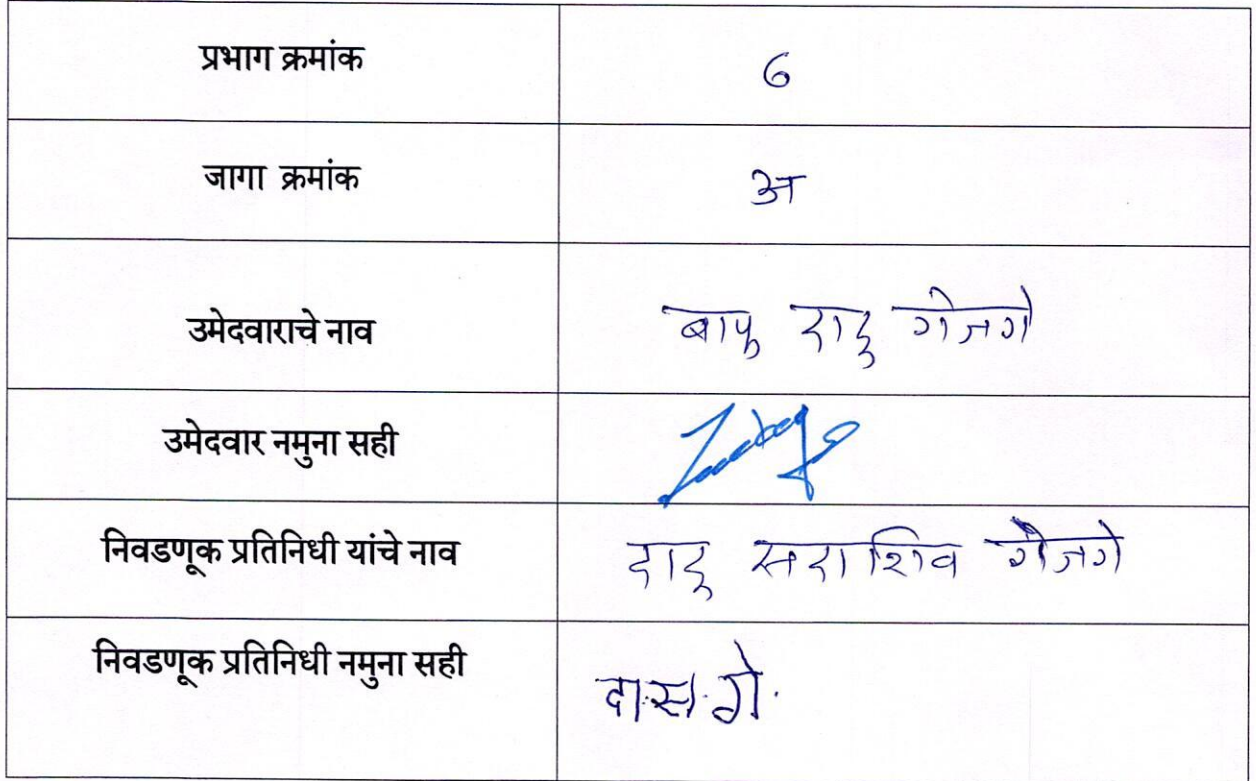 प्रभाग क्रमांक 6
जागा क्रमांक अ
उमेदवाराचे नाव बापु दादु गेजगे
उमेदवार नमुना सही
निवडणूक प्रतिनिधी यांचे नाव दादु सदाशिव गेजगे
निवडणूक प्रतिनिधी नमुना सही दा.स.गे.